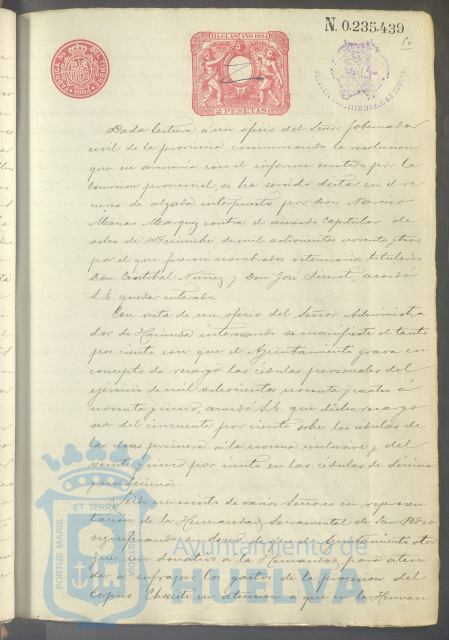 N. 0.235.439
50
11ª CLASE AÑO 1894
2 PESETAS
Dada lectura á un oficio del Señor Gobernador
civil de la provincia comunicando la resolucion
que en armonia con el informe emitido por la
Comision provincial, se ha servido dictar en el re
curso de alzada interpuesto por Don Narciso
Macias Marquez contra el acuerdo Capitular de
ocho de Diciembre de mil ochocientos noventa y tres
por el que fueron nombrados veterinarios titulares
Don Cristobal Nuñez y Don José acordó
S.E. quedar enterado.
Con vista de un oficio del Señor Administra
dor de Hacienda interesando se manifieste el tanto
por ciento con que el Ayuntamiento grava en
concepto de recargo las cédulas personales del
ejercicio de mil ochocientos noventa y cuatro á
noventa y cinco, acordó S.E. que dicho recargo
sea del cincuenta por ciento sobre las cédulas de
las clases primera á la novena inclusive y del
veinte y cinco por ciento en las cédulas de décima
y undécima.
Leida una instancia de varios Señores en represen
tacion de la Hermandad Sacramental de San Pedro
significando su deseo de que el Ayuntamiento otor
gue un donativo á la Hermandad para aten
der á sufragar los gastos de la procesion del
Corpus Christi en atencion á que en la Herman
PORTUS MARIS
ET TERRÆ
Ayuntamiento de
HUELVA